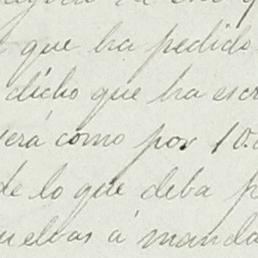 que ha pedido
dicho que ha escr
verá como por 10.
de lo que deba p
uelvas á manda